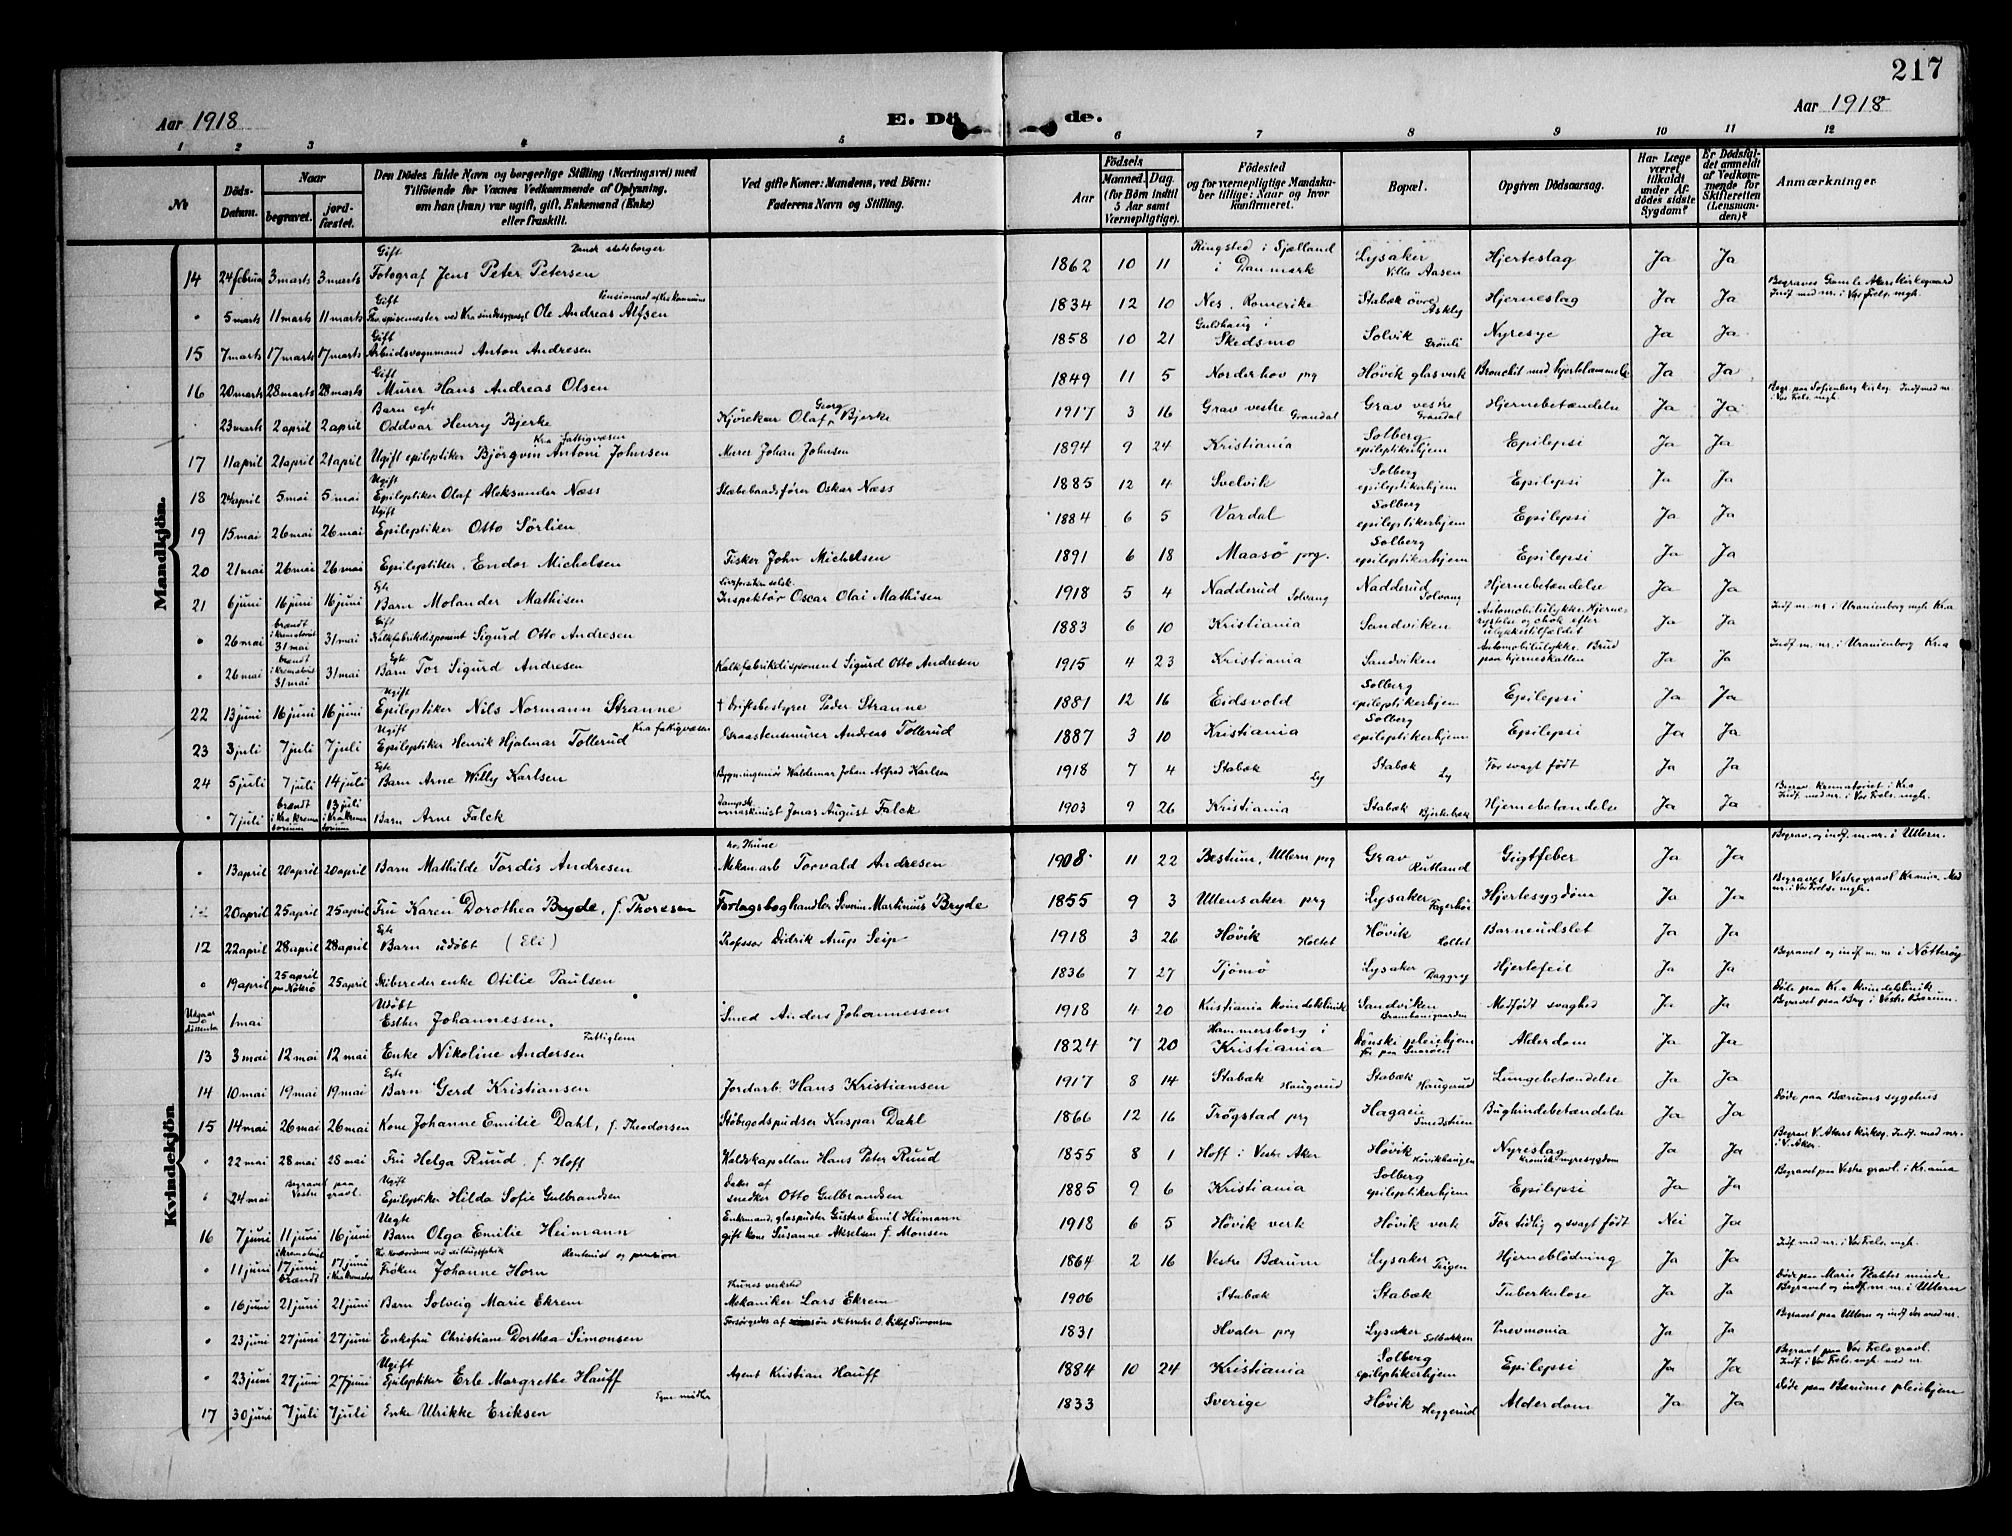 217
Aar 1918
E. Dö de.
Aar 1918
1 2 3 4 5 6 7 8 9 10 11 12
No
Döds-Datum.
Naar
begravet.
jordfæstet.
Den Dödes fulde Navn og borgerlige Stilling (Næringsvei) med
Tilföiende for Voxnes Vedkommende af Oplysning,
om han (hun) var ugift, gift, Enkemand (Enke)
eller fraskilt.
Ved gifte Koner: Mandens, ved Börn:
Faderens Navn og Stilling.
Födsels
Aar
Maaned. Dag.
(for Börn indtil
5 Aar samt
Værnepligtige).
Födested
og for værnepligtige Mandska-
ber tillige: Naar og hvor
konfirmeret.
Bopæl.
Opgiven Dödsaarsag.
Har Læge
været
tilkaldt
under Af-
dödes sidste
Sygdom?
Er Dödsfal-
det anmeldt
af Vedkom-
mende for
Skifteretten
(Lensman-
den)?
Anmærkninger.
Mandkjön.
14 24 februar 3 marts 3 marts Gift Dansk statsborger Fotograf Jens Peter Petersen 1862 10 11 Ringsted i Sjælland i Danmark Lysaker Villa Aasen Hjerteslag Ja Ja
" 5 marts 11 marts 11 marts Gift Ole Andreas Alfsen 1834 12 10 Nes, Romerike Stabæk øvre Askly Hjerneslag Ja Ja Begraves Gamle Akers Kirkegaard Indf med nr. i Vor Frels. mgh.
15 7 marts 17 marts 17 marts Gift Arbeidsvognmand Anton Andresen 1858 10 21 Guldhaug i Skedsmo Solvik Grönli Nyresye Ja Ja
16 20 marts 28 marts 28 marts Gift Murer Hans Andreas Olsen 1849 11 5 Norderhov prg Høvik glasverk Bronchit med hjertelammelse Ja Ja
23 marts 2 april 2 april Barn egte Oddvar Henry Bjerke Kjörekar Olaf Georg Bjerke 1917 3 16 Grav vestre Grandal Grav vestre Grandal Hjernebetændelse Ja Ja Begr. paa Sofienberg kirkeg. Indf med nr. i Vor Frels. mgh.
17 11 april 21 april 21 april Kra fattigvæsen Ugift epileptiker Björgvin Antoni Johnsen Murer Johan Johnsen 1894 9 24 Kristiania Solberg epileptikerhjem Epilepsi Ja Ja
18 24 april 5 mai 5 mai Ugift Epileptiker Olaf Aleksander Næss Slæbebaadsfører Oskar Næss 1885 12 4 Svelvik Solberg epileptikerhjem Epilepsi Ja Ja
19 15 mai 26 mai 26 mai Ugift Epileptiker Otto Sörlien 1884 6 5 Vardal Solberg epileptikerhjem Epilepsi Ja Ja
20 21 mai 26 mai 26 mai Epileptiker, Endor Michelsen Fisker John Michelsen 1891 6 18 Maasø prg. Solberg epileptikerhjem Epilepsi Ja Ja
21 6 juni 16 juni 16 juni Egte Barn Molander Mathisen Inspektør Oscar Olai Mathisen 1918 5 4 Nadderud Solvang Nadderud Solvang Hjernebetændelse Ja Ja
" 26 mai brændt i krematoriet 31 mai 31 mai Gift Kalkfabrikdisponent Sigurd Otto Andresen 1883 6 10 Kristiania Sandviken Automobilulykke. Hjernerystelse og chok efter ulykkestilfældet Ja Ja Indf m. nr. i Uranienborg mgh Kra
" 26 mai brændt i krematoriet 31 mai 31 mai Egte Barn Tor Sigurd Andresen Kalkfabrikdisponent Sigurd Otto Andresen 1915 4 23 Kristiania Sandviken Automobilulykke. Brud paa hjerneskallen Ja Ja Indf m. nr. i Uranienborg Kra
22 13 juni 16 juni 16 juni Ugift Epileptiker Nils Normann Stranne † driftsbestyrer Peder Stranne 1881 12 16 Eidsvold Solberg epileptikerhjem Epilepsi Ja Ja
23 3 juli 7 juli 7 juli Ugift Kra fattigvæsen Epileptiker Henrik Hjalmar Tollerud Graastensmurer Andreas Tollerud 1887 3 10 Kristiania Solberg epileptikerhjem Epilepsi Ja Ja
24 5 juli 7 juli 14 juli Egte Barn Arne Willy Karlsen Bygn.ingeniør Waldemar Johan Alfred Karlsen 1918 7 4 Stabæk Ly Stabæk Ly For svagt født Ja Ja
" 7 juli brændt i Kra. krematorium 13 juli i Kra krematorium Barn Arne Falck Dampsk. maskinist Jonas August Falck 1903 9 26 Kristiania Stabæk Bjerkebæk Hjernebetændelse Ja Ja Begrav krematoriet i Kra Indf. med nr. i Vor Frels. mgh.
Kvindekjön
" 13 april 20 april 20 april Barn Mathilde Tordis Andresen Mekan.arb Torvald Andresen 1908 11 22 Bestum, Ullern prg Grav Rutland Gigtfeber Ja Ja Begrav. og indf. m. nr. i Ullern.
20 april 25 april 25 april Fru Karen Dorothea Bryde, f. Thoresen Forlagsboghandler Severin Martinius Bryde 1855 9 3 Ullensaker prg Lysaker Fagerhøi Hjertesygdom Ja Ja Begraves Vestre gravl Krania. Med nr. i Vor Frels. mgh.
12 22 april 28 april 28 april Egte Barn udöbt (Eli) Professor Didrik Arup Seip 1918 3 26 Høvik Holtet Høvik Holtet Barneudslet Ja Ja
" 19 april 25 april paa Nøtterø 25 april Skibsreder enke Otilie Paulsen 1836 7 27 Tjömö Lysaker Daggry Hjertefeil Ja Ja Begravet og indf. m. nr i Nötteröy
Utgaar dissenter 1 mai Udöbt Esther Johannessen. Smed Anders Johannessen 1918 4 20 Kristiania kvindeklinik Sandviken Medfødt svaghed Ja Ja Døde paa Kra Kvindeklinik Begravet paa Bry. i Vestre Bærum.
13 3 mai 12 mai 12 mai Fattiglem Enke Nikoline Andersen 1824 7 20 Hammersborg i Kristiania pleiehjem Alderdom Ja Ja
14 10 mai 19 mai 19 mai Egte Barn Gerd Kristiansen Jordarb. Hans Kristiansen 1917 8 14 Stabæk Haugerud Stabæk Haugerud Lungebetændelse Ja Ja
15 14 mai 26 mai 26 mai Kone Johanne Emilie Dahl, f. Theodorsen Støbegodspudser Kaspar Dahl 1866 12 16 Trøgstad prg Hagaen Smedstuen Bughindebetændelse Ja Ja Døde paa Bærums sygehus
" 22 mai 28 mai 28 mai Fru Helga Ruud f. Hoff Kaldskapellan Hans Peter Ruud 1855 8 1 Hoff i Vestre Aker Høvik Høvikhaugen Nyreslag kronisk nyresygdom Ja Ja Begrav V. Akers Kirkeg. Indf. med nr. i V. Aker
" 24 mai begravet paa Vestre gravl. Ugift Epileptiker Hilda Sofie Gulbrandsen Datter af snedker Otto Gulbrandsen 1885 9 6 Kristiania Solberg epileptikerhjem Epilepsi Ja Ja Begravet paa Vestre gravl. i Kr.ania
16 7 juni 11 juni 16 juni Uegte Barn Olga Emilie Heimann Enkemand, glaspuster Gustav Emil Heimann gift kone Susanne Akselsen f. Monsen 1918 6 5 Høvik verk Høvik verk For tidlig og svagt født Nei Ja
" 11 juni i krematoriet 17 juni brændt 17 juni Rentenist og pension Frøken Johanne Horn 1864 2 16 Vestre Bærum Lysaker Teigen Hjerneblödning Ja Ja Indf med nr. i Vor Frels. mgh.
" 16 juni 21 juni 21 juni Barn Solveig Marie Ekrem Thunes verksted Mekaniker Lars Ekrem 1906 Stabæk Stabæk Tuberkulose Ja Ja Døde paa Marie Plahtes minde Begravet og indf. m. nr i Ullern
" 23 juni 27 juni 27 juni Enkefru Christiane Dorthea Simonsen Forsørgedes af søn skibsrede O. Ditlef Simonsen 1831 Hvaler prg Lysaker Solbakken Pnevmonia Ja Ja Begravet paa Ullern og indf der med nr.
" 23 juni 27 juni 27 juni Ugift Epileptiker Erle Margrethe Hauff Agent Kristian Hauff 1884 10 24 Kristiania Solberg epileptikerhjem Epilepsi Ja Ja Begravet paa Vor Frels gravl. Indf i Vor Frels. mgh med nr.
17 30 juni 7 juli 7 juli Egne midler Enke Ulrikke Eriksen 1833 Sverige Høvik Heggerud Alderdom Ja Ja Døde paa Bærums pleiehjem